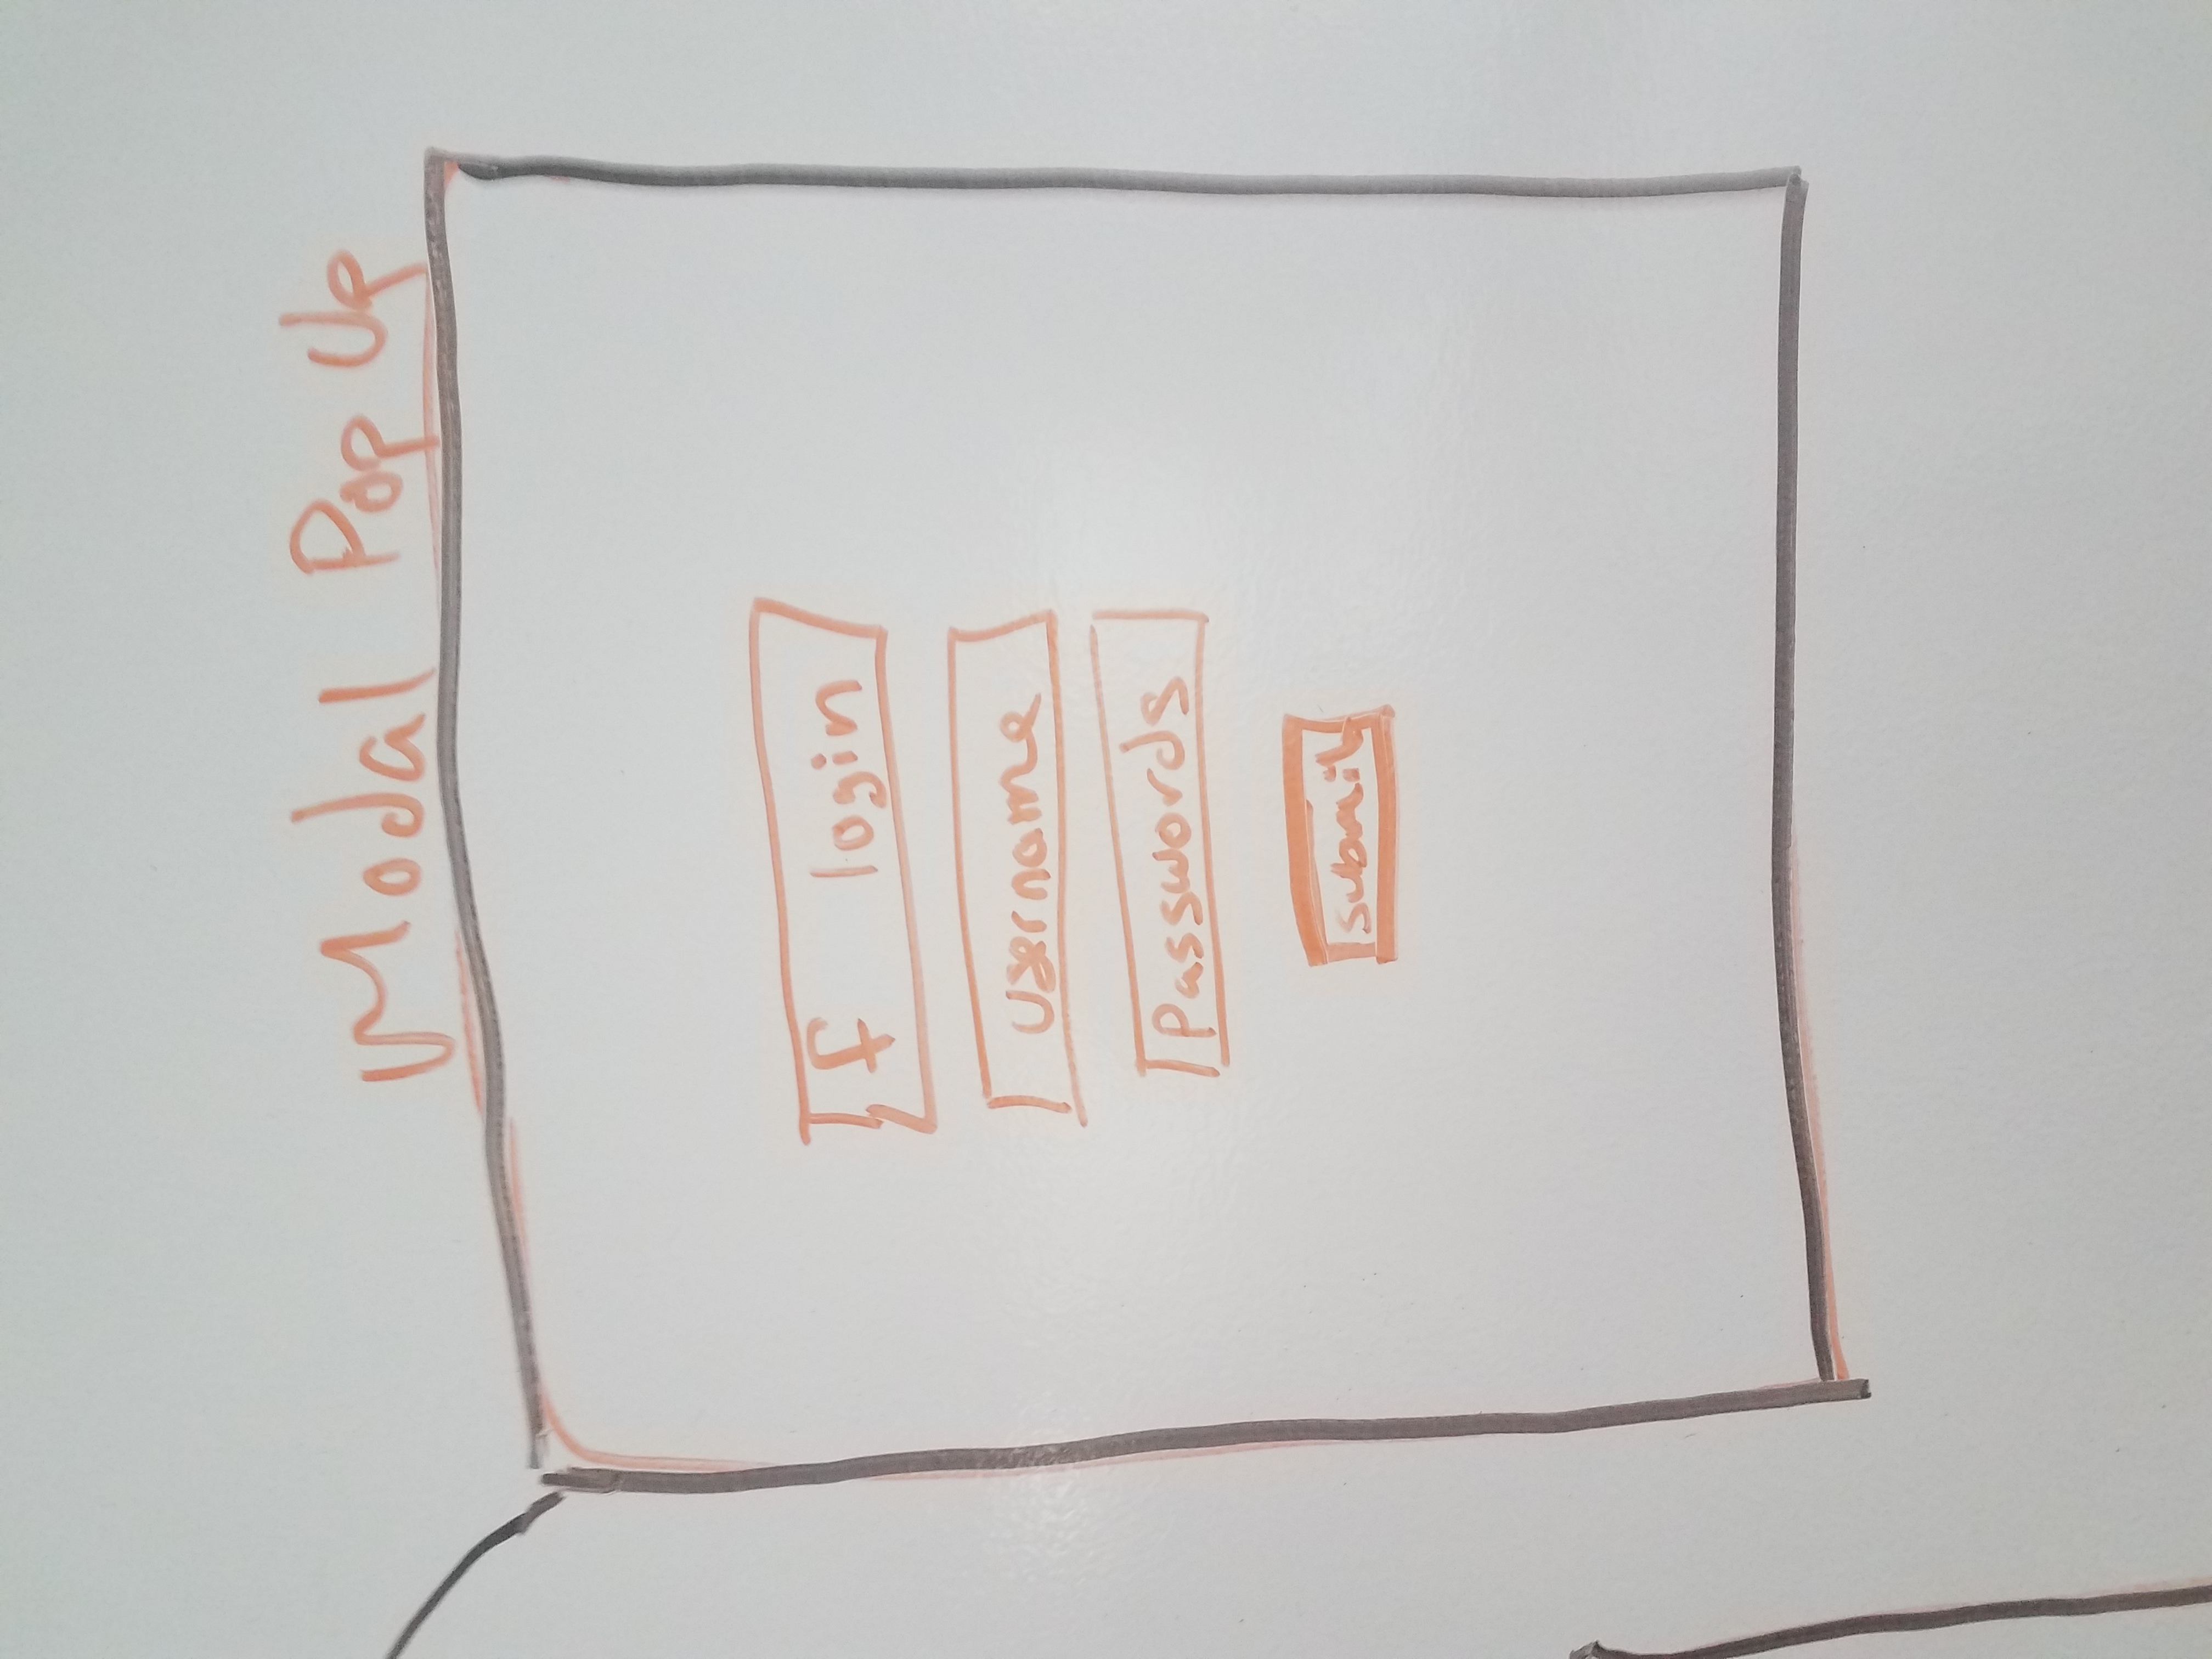 Modal Pop Up
f login
username
Passwords
submit